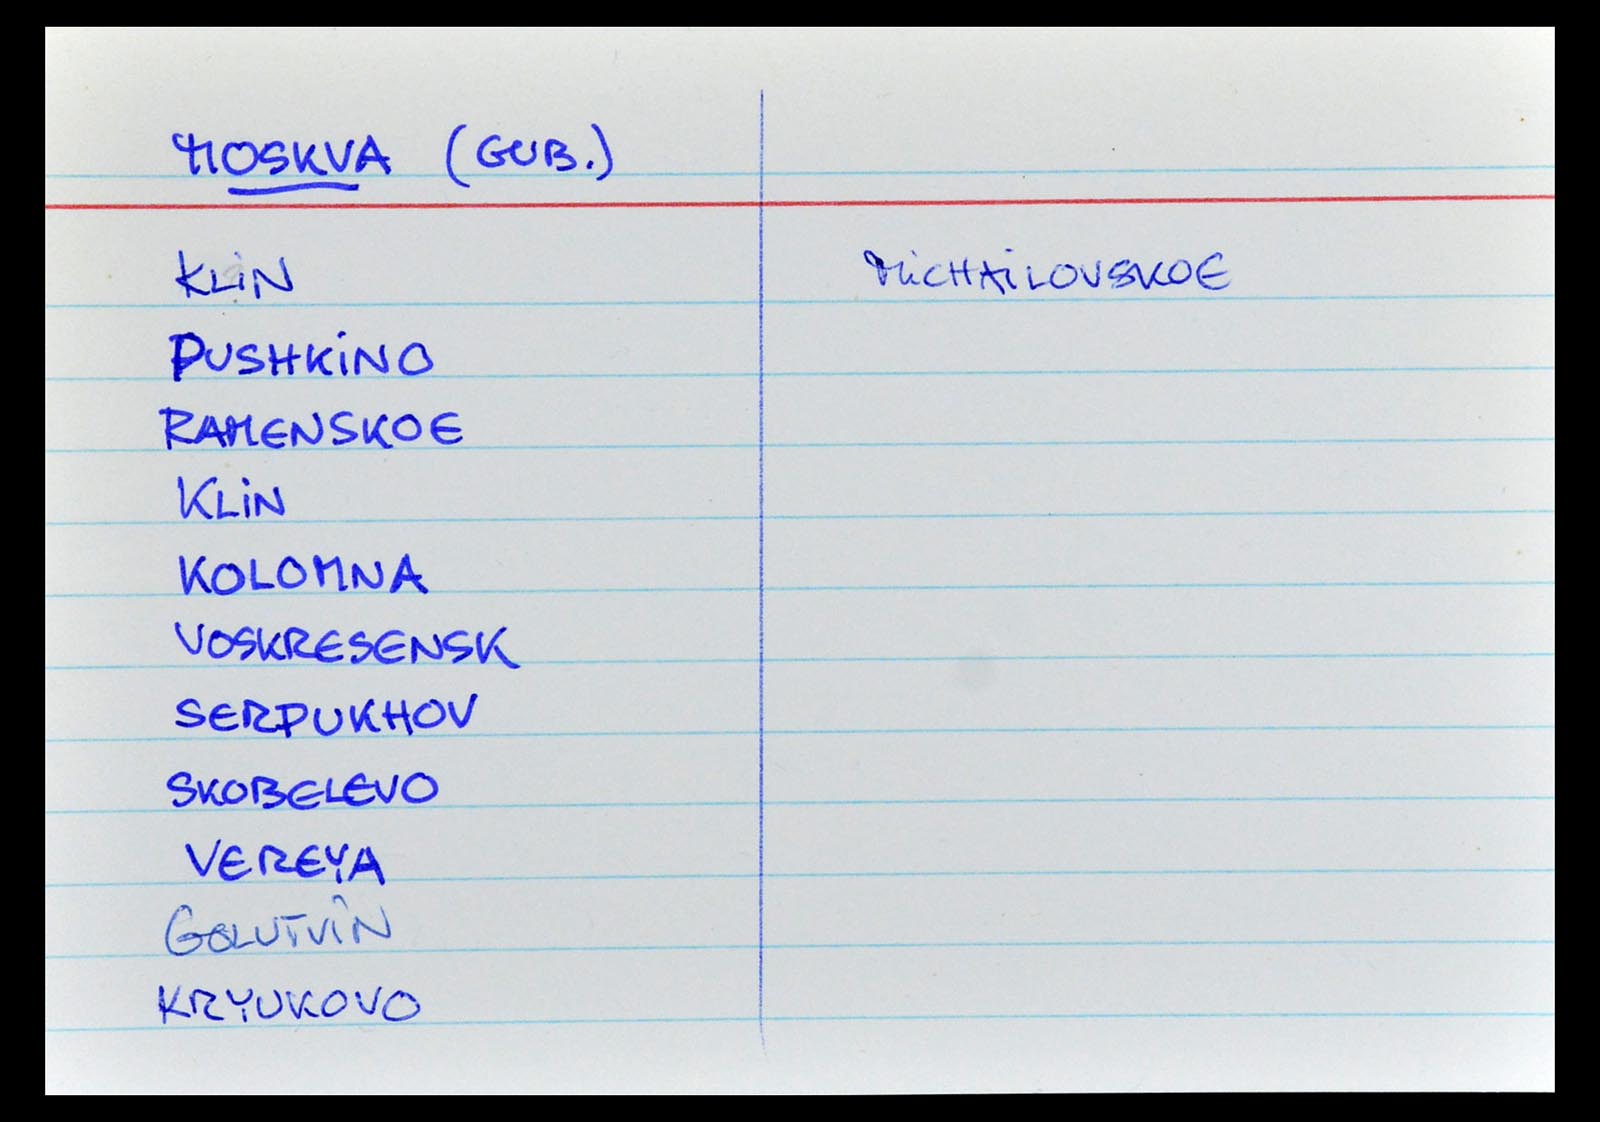 MOSKVA (GUB.)
KLiN
PUSHKiNO
RAMENSKOE
KLiN
KOLOMNA
VOSKRESENSK
SERPUKHOV
SKOBELEVO
VEREYA
GOLUTViN
KRYUKOVO
MiCHAiLOVSKOE